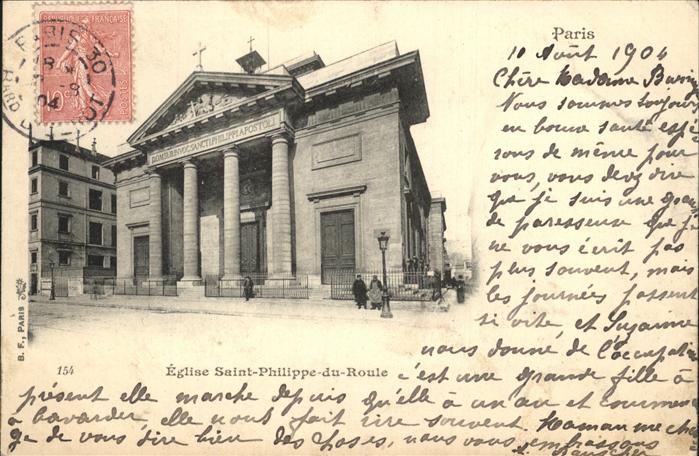 Paris
10 Août 1904
Chère Madame
Nous sommes toujours
en bonne santé espé
rons de même pour
vous, vous devez dire
que je suis une
de paresseuse que je
ne vous écrit pas
plus souvent, mais
les journées passent
si vite, et Suzanne
nous donne de l'occupation
c'est une grande fille à
présent elle marche depuis qu'elle à un an et commence
à bavarder, elle nous fait rire souvent. Maman me char
ge de vous dire bien des choses, nous vous embrassons
RÉPUBLIQUE FRANÇAISE
POSTES
PARIS
04
DOM SUB INVOC SANCTI PHILIPPI APOSTOLI
B. F., PARIS
154
Église Saint-Philippe-du-Roule